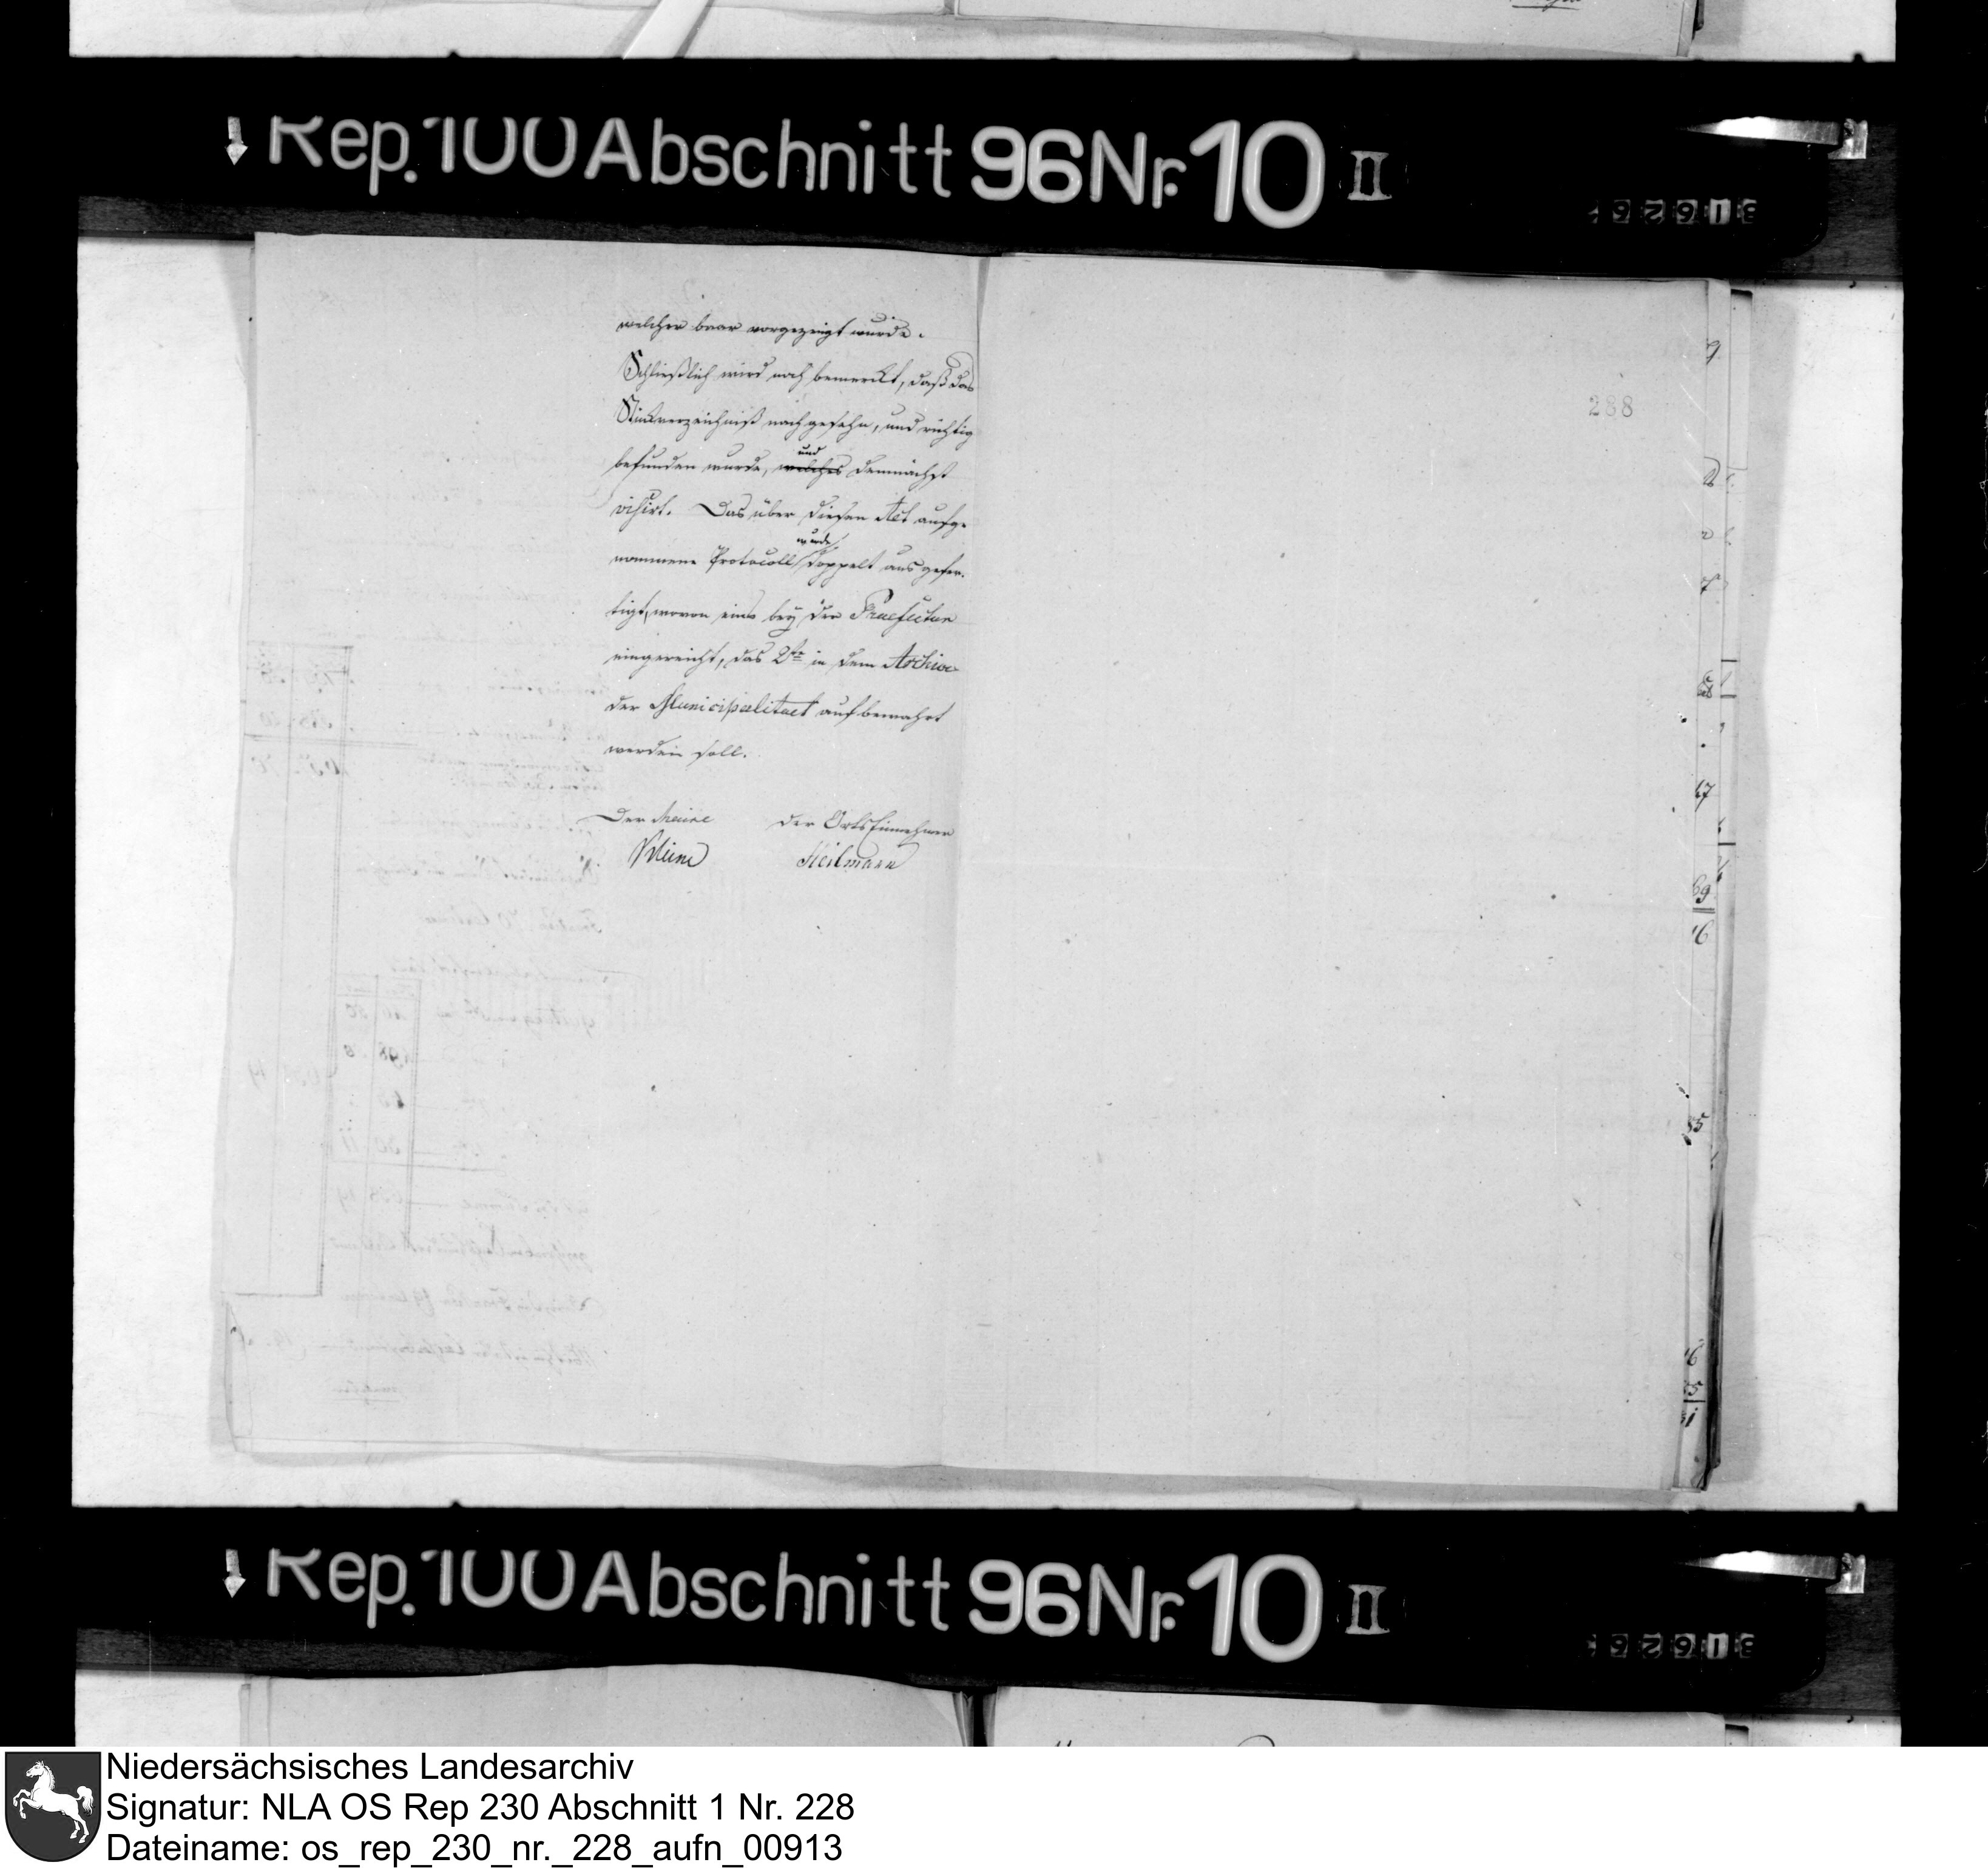 Rep. 100 Abschnitt 96 Nr. 10 II
welcher baar vorgezeigt wurde.
Schließlich wird noch bemerckt, daß das
Stückverzeichniß nachgesehn, und richtig
befunden wurde, welches und demnächst
visirt. Das über diesen Act aufge
nommene Protocoll wurde doppelt aus gefer.
tigt, wovon eins bey der Praefectur
eingereicht, das 2te in dem Archive
der Municipalitaet aufbewahrt
werden soll.
Der Maire
der Ortseinnehmer
Heilmann
288
Rep. 100 Abschnitt 96 Nr. 10 II
Niedersächsisches Landesarchiv
Signatur: NLA OS Rep 230 Abschnitt 1 Nr. 228
Dateiname: os_rep_230_nr._228_aufn_00913